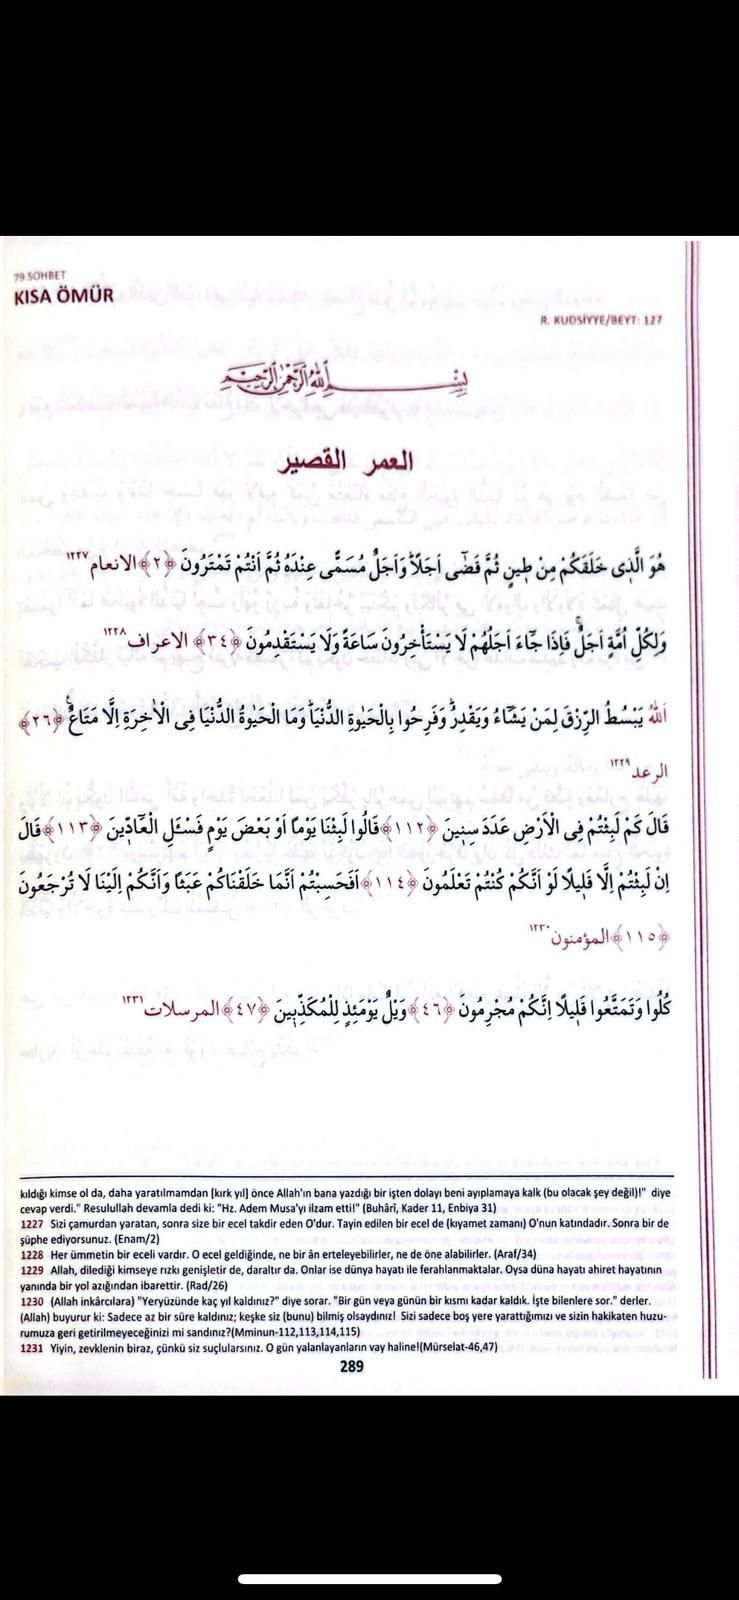 79.SOHBET
KISA ÖMÜR
R. KUDSİYYE/BEYT: 127
بِسْمِ اللّٰهِ الرَّحْمٰنِ الرَّحِيمِ
العمر القصير
هُوَ الَّذِى خَلَقَكُمْ مِنْ طِينٍ ثُمَّ قَضٰٓى اَجَلًاۜ وَاَجَلٌ مُسَمًّى عِنْدَهُ ثُمَّ اَنْتُمْ تَمْتَرُونَ ﴿٢﴾ الانعام ١٢٢٧
وَلِكُلِّ اُمَّةٍ اَجَلٌۚ فَاِذَا جَٓاءَ اَجَلُهُمْ لَا يَسْتَأْخِرُونَ سَاعَةً وَلَا يَسْتَقْدِمُونَ ﴿٣٤﴾ الاعراف ١٢٢٨
اَللّٰهُ يَبْسُطُ الرِّزْقَ لِمَنْ يَشَٓاءُ وَيَقْدِرُۜ وَفَرِحُوا بِالْحَيٰوةِ الدُّنْيَاۜ وَمَا الْحَيٰوةُ الدُّنْيَا فِى الْاٰخِرَةِ اِلَّا مَتَاعٌ۟ ﴿٢٦﴾
الرعد ١٢٢٩
قَالَ كَمْ لَبِثْتُمْ فِى الْاَرْضِ عَدَدَ سِنِينَ ﴿١١٢﴾ قَالُوا لَبِثْنَا يَوْمًا اَوْ بَعْضَ يَوْمٍ فَسْـَٔلِ الْعَٓادِّينَ ﴿١١٣﴾ قَالَ
اِنْ لَبِثْتُمْ اِلَّا قَلِيلًا لَوْ اَنَّكُمْ كُنْتُمْ تَعْلَمُونَ ﴿١١٤﴾ اَفَحَسِبْتُمْ اَنَّمَا خَلَقْنَاكُمْ عَبَثًا وَاَنَّكُمْ اِلَيْنَا لَا تُرْجَعُونَ
﴿١١٥﴾ المؤمنون ١٢٣٠
كُلُوا وَتَمَتَّعُوا قَلِيلًا اِنَّكُمْ مُجْرِمُونَ ﴿٤٦﴾ وَيْلٌ يَوْمَئِذٍ لِلْمُكَذِّبِينَ ﴿٤٧﴾ المرسلات ١٢٣١
kıldığı kimse ol da, daha yaratılmamdan [kırk yıl] önce Allah'ın bana yazdığı bir işten dolayı beni ayıplamaya kalk (bu olacak şey değil)!" diye
cevap verdi." Resulullah devamla dedi ki: "Hz. Adem Musa'yı ilzam etti!" (Buhârî, Kader 11, Enbiya 31)
1227 Sizi çamurdan yaratan, sonra size bir ecel takdir eden O'dur. Tayin edilen bir ecel de (kıyamet zamanı) O'nun katındadır. Sonra bir de
şüphe ediyorsunuz. (Enam/2)
1228 Her ümmetin bir eceli vardır. O ecel geldiğinde, ne bir ân erteleyebilirler, ne de öne alabilirler. (Araf/34)
1229 Allah, dilediği kimseye rızkı genişletir de, daraltır da. Onlar ise dünya hayatı ile ferahlanmaktalar. Oysa düna hayatı ahiret hayatının
yanında bir yol azığından ibarettir. (Rad/26)
1230 (Allah inkârcılara) "Yeryüzünde kaç yıl kaldınız?" diye sorar. "Bir gün veya günün bir kısmı kadar kaldık. İşte bilenlere sor." derler.
(Allah) buyurur ki: Sadece az bir süre kaldınız; keşke siz (bunu) bilmiş olsaydınız! Sizi sadece boş yere yarattığımızı ve sizin hakikaten huzu-
rumuza geri getirilmeyeceğinizi mi sandınız?(Mminun-112,113,114,115)
1231 Yiyin, zevklenin biraz, çünkü siz suçlularsınız. O gün yalanlayanların vay haline!(Mürselat-46,47)
289